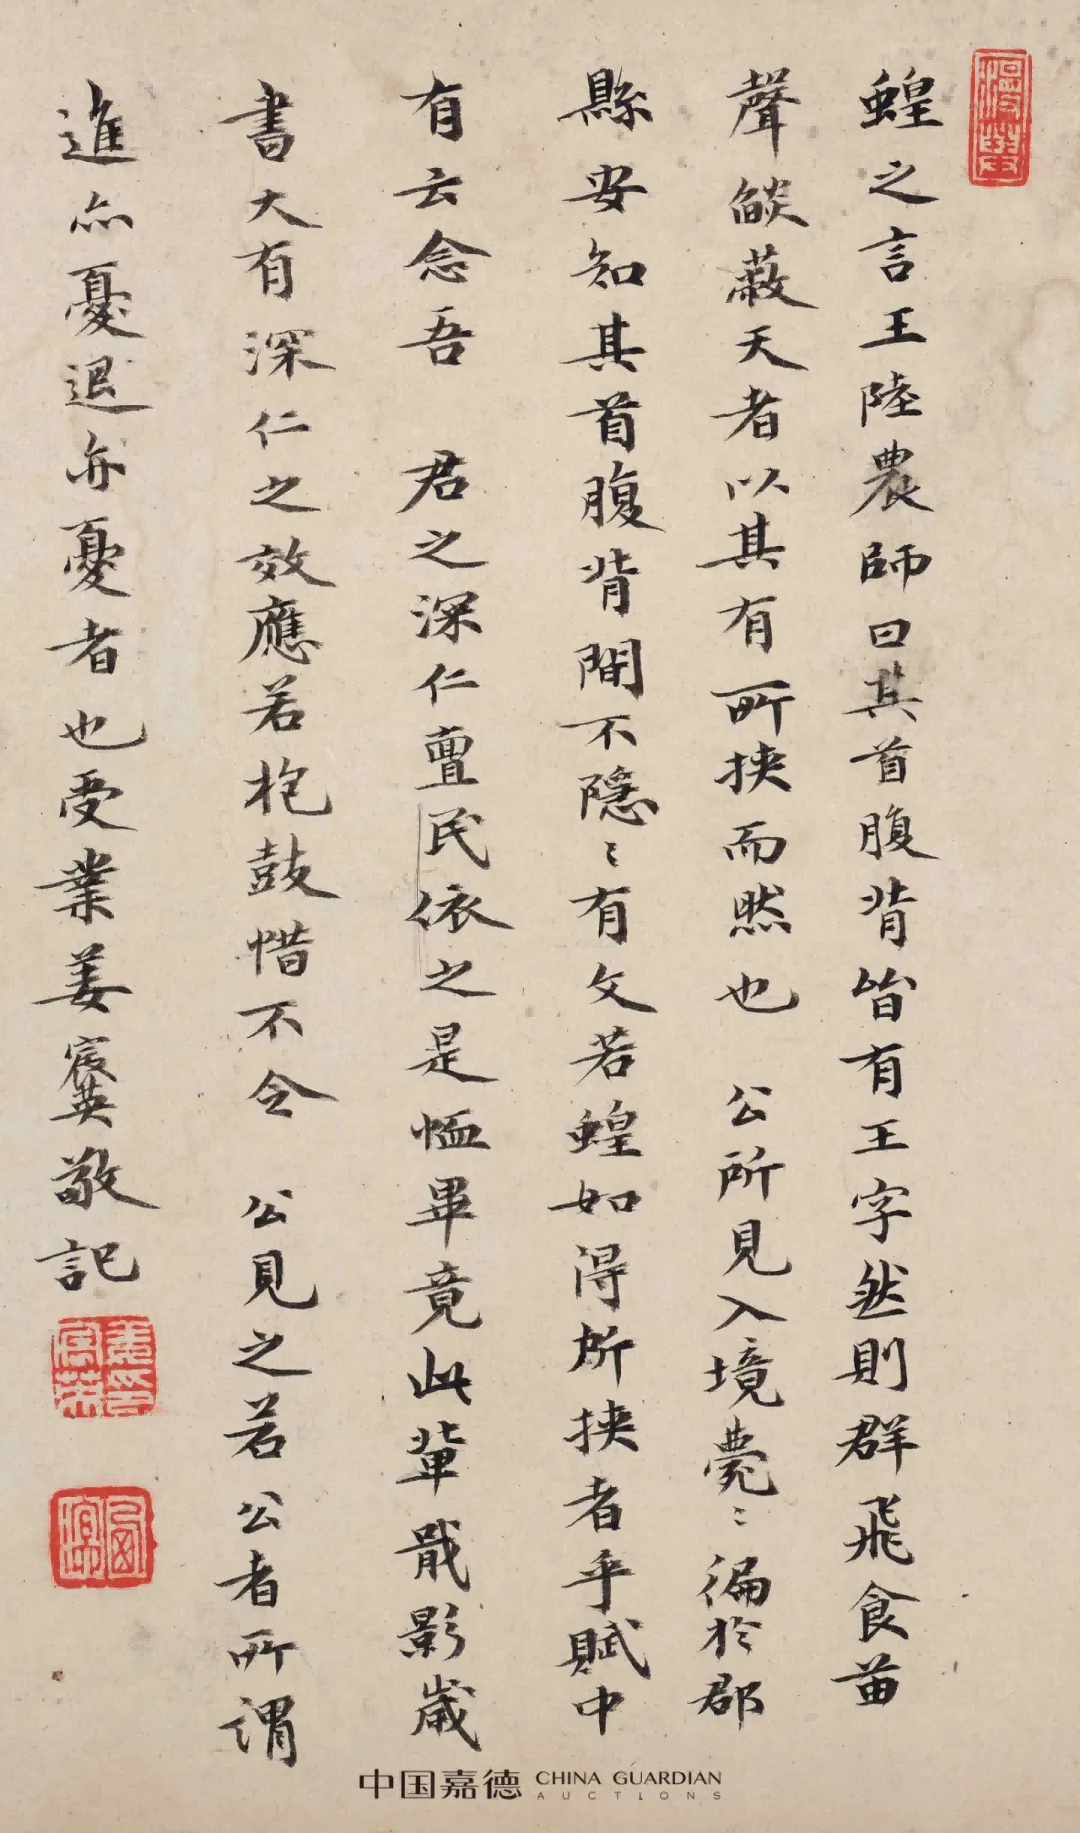 蝗之言王陸農師曰其首腹背皆有王字然則群飛食苗
聲燄蔽天者以其有所挾而然也 公所見入境薨〻徧於郡
縣安知其首腹背間不隱〻有文若蝗如得所挾者乎賦中
有云念吾 君之深仁亶民依之是恤畢竟此輩戢影歲
書大有深仁之效應若枹鼓惜不令 公見之若公者所謂
進亦憂退亦憂者也受業姜宸英敬記
中国嘉德 CHINA GUARDIAN
AUCTIONS